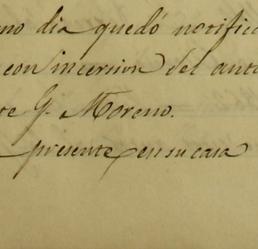 mo dia quedó notific
con incersion del auto
te G. Moreno.
presente en su casa